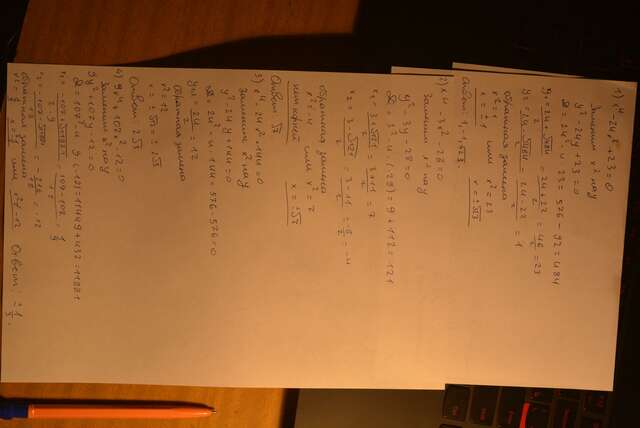 1) x⁴-24x²+23=0
Заменим x² на y
y²-24y+23=0
D=24²-4·23=576-92=484
y₁=24+√484/2=24+22/2=46/2=23
y₂=24-√484/2=24-22/2=1
обратная замена
x²=1 или x²=23
x=±1 x=±√23
Ответ: 1;-1;±√23.
2) x⁴-3x²-28=0
Заменим x² на y
y²-3y-28=0
D=3²-4·(-28)=9+112=121
x₁=3+√121/2=3+11/2=7
x₂=3-√121/2=3-11/2=-8/2=-4
обратная замена
x²=-4 или x²=7
нет корней x=±√7
Ответ √7
3) x⁴-24x²+144=0
Заменим x² на y
y²-24y+144=0
D=24²-4·144=576-576=0
y=24/2=12
обратная замена
x²=12
x=±√12=±√3
Ответ 2√3
4) 9x⁴+107x²-12=0
Заменим x² на y
9y²+107y-12=0
D=107²-4·9·(-12)=11449+432=11881
x₁=-107+√11881/2·9=-107+109/18=1/9
x₂=-107-√11881/18=-216/18=-12
обратная замена
x²=1/9 x=±1/3 или x²=-12 Ответ: ±1/3.